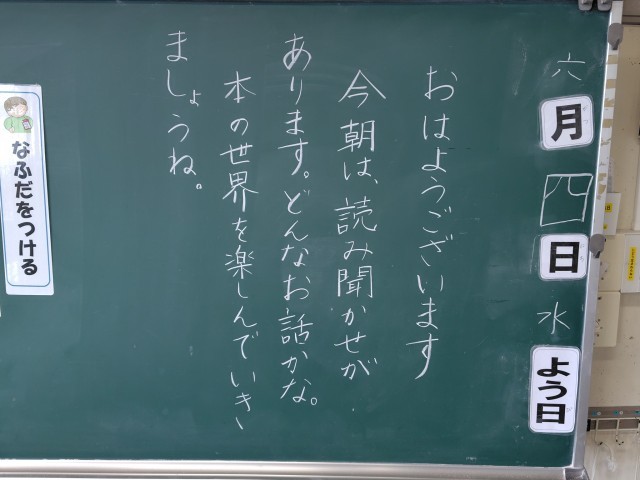 六月四日水よう日
おはようございます
今朝は、読み聞かせが
あります。どんなお話かな。
本の世界を楽しんでいき
ましょうね。
なふだをつける